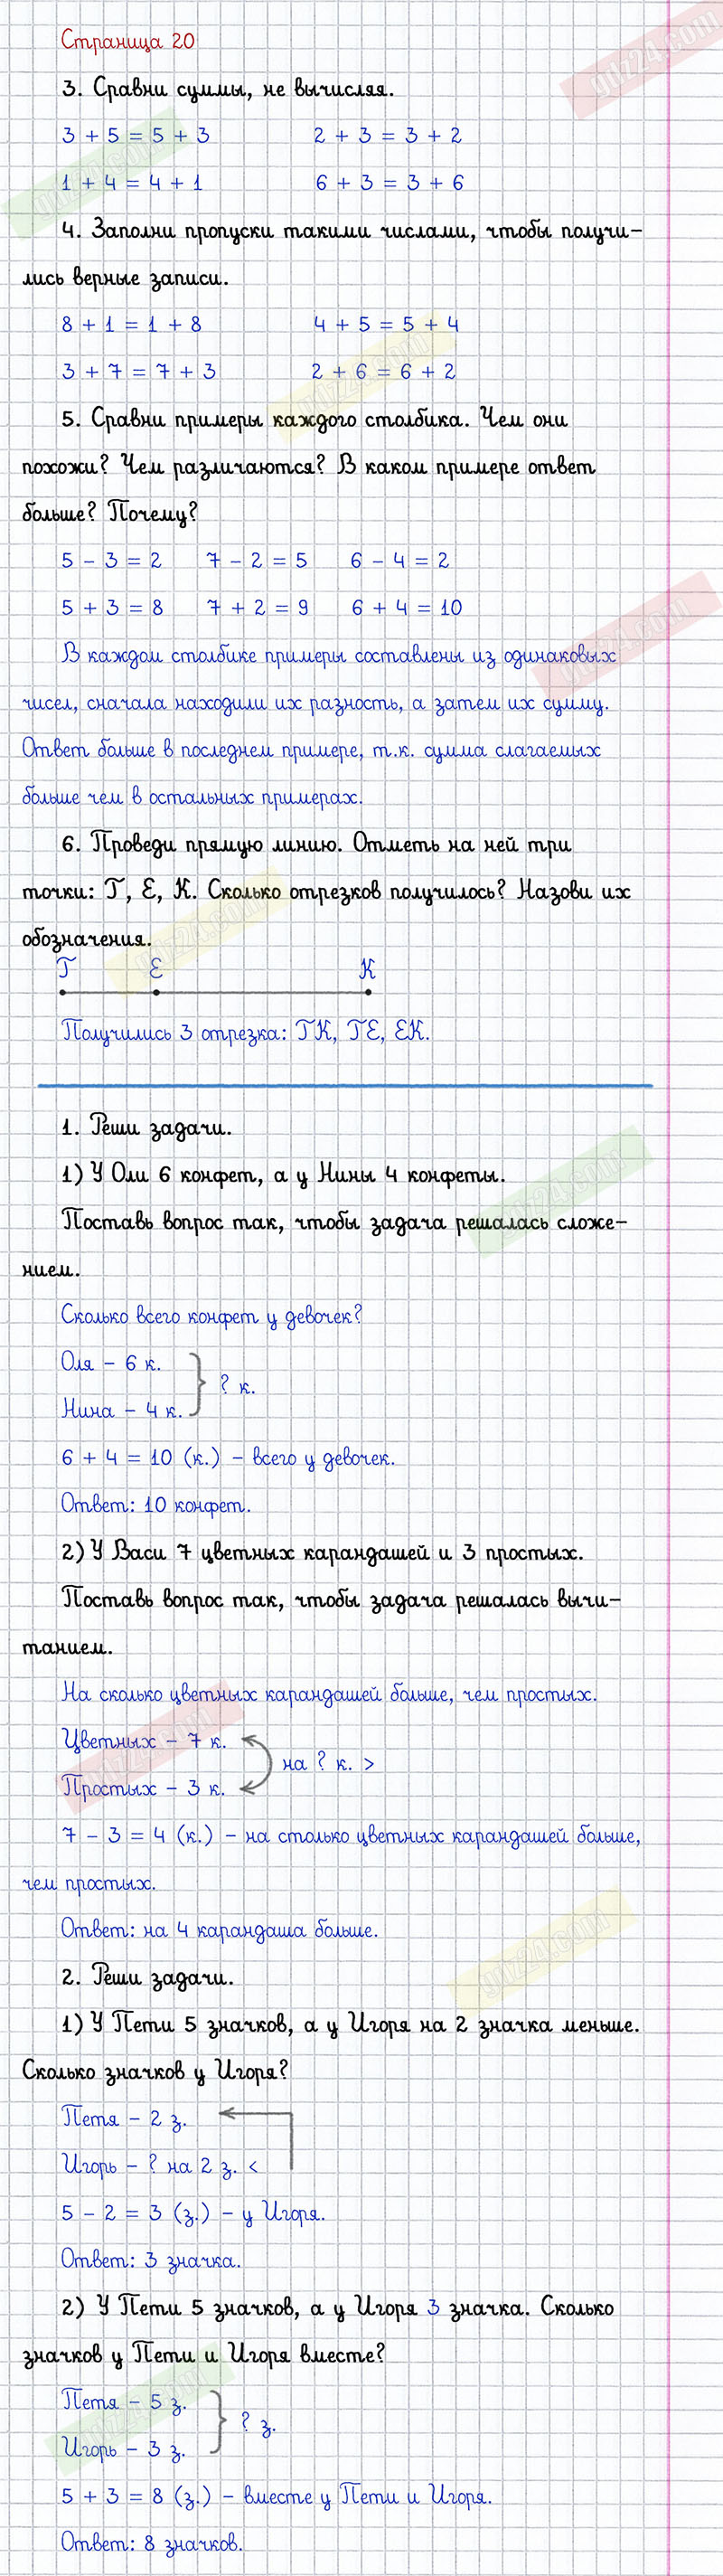 Страница 20
3. Сравни суммы, не вычисляя.
3 + 5 = 5 + 3 2 + 3 = 3 + 2
1 + 4 = 4 + 1 6 + 3 = 3 + 6
4. Заполни пропуски такими числами, чтобы получи-
лись верные записи.
8 + 1 = 1 + 8 4 + 5 = 5 + 4
3 + 7 = 7 + 3 2 + 6 = 6 + 2
5. Сравни примеры каждого столбика. Чем они
похожи? Чем различаются? В каком примере ответ
больше? Почему?
5 - 3 = 2 7 - 2 = 5 6 - 4 = 2
5 + 3 = 8 7 + 2 = 9 6 + 4 = 10
В каждом столбике примеры составлены из одинаковых
чисел, сначала находили их разность, а затем их сумму.
Ответ больше в последнем примере, т.к. сумма слагаемых
больше чем в остальных примерах.
6. Проведи прямую линию. Отметь на ней три
точки: Т, Е, К. Сколько отрезков получилось? Назови их
обозначения.
Т Е К
Получились 3 отрезка: ТК, ТЕ, ЕК.
1. Реши задачи.
1) У Оли 6 конфет, а у Нины 4 конфеты.
Поставь вопрос так, чтобы задача решалась сложе-
нием.
Сколько всего конфет у девочек?
Оля - 6 к.
? к.
Нина - 4 к.
6 + 4 = 10 (к.) - всего у девочек.
Ответ: 10 конфет.
2) У Васи 7 цветных карандашей и 3 простых.
Поставь вопрос так, чтобы задача решалась вычи-
танием.
На сколько цветных карандашей больше, чем простых.
Цветных - 7 к.
на ? к. >
Простых - 3 к.
7 - 3 = 4 (к.) - на столько цветных карандашей больше,
чем простых.
Ответ: на 4 карандаша больше.
2. Реши задачи.
1) У Пети 5 значков, а у Игоря на 2 значка меньше.
Сколько значков у Игоря?
Петя - 2 з.
Игорь - ? на 2 з. <
5 - 2 = 3 (з.) - у Игоря.
Ответ: 3 значка.
2) У Пети 5 значков, а у Игоря 3 значка. Сколько
значков у Пети и Игоря вместе?
Петя - 5 з.
? з.
Игорь - 3 з.
5 + 3 = 8 (з.) - вместе у Пети и Игоря.
Ответ: 8 значков.
gdz24.com
gdz24.com
gdz24.com
gdz24.com
gdz24.com
gdz24.com
gdz24.com
gdz24.com
gdz24.com